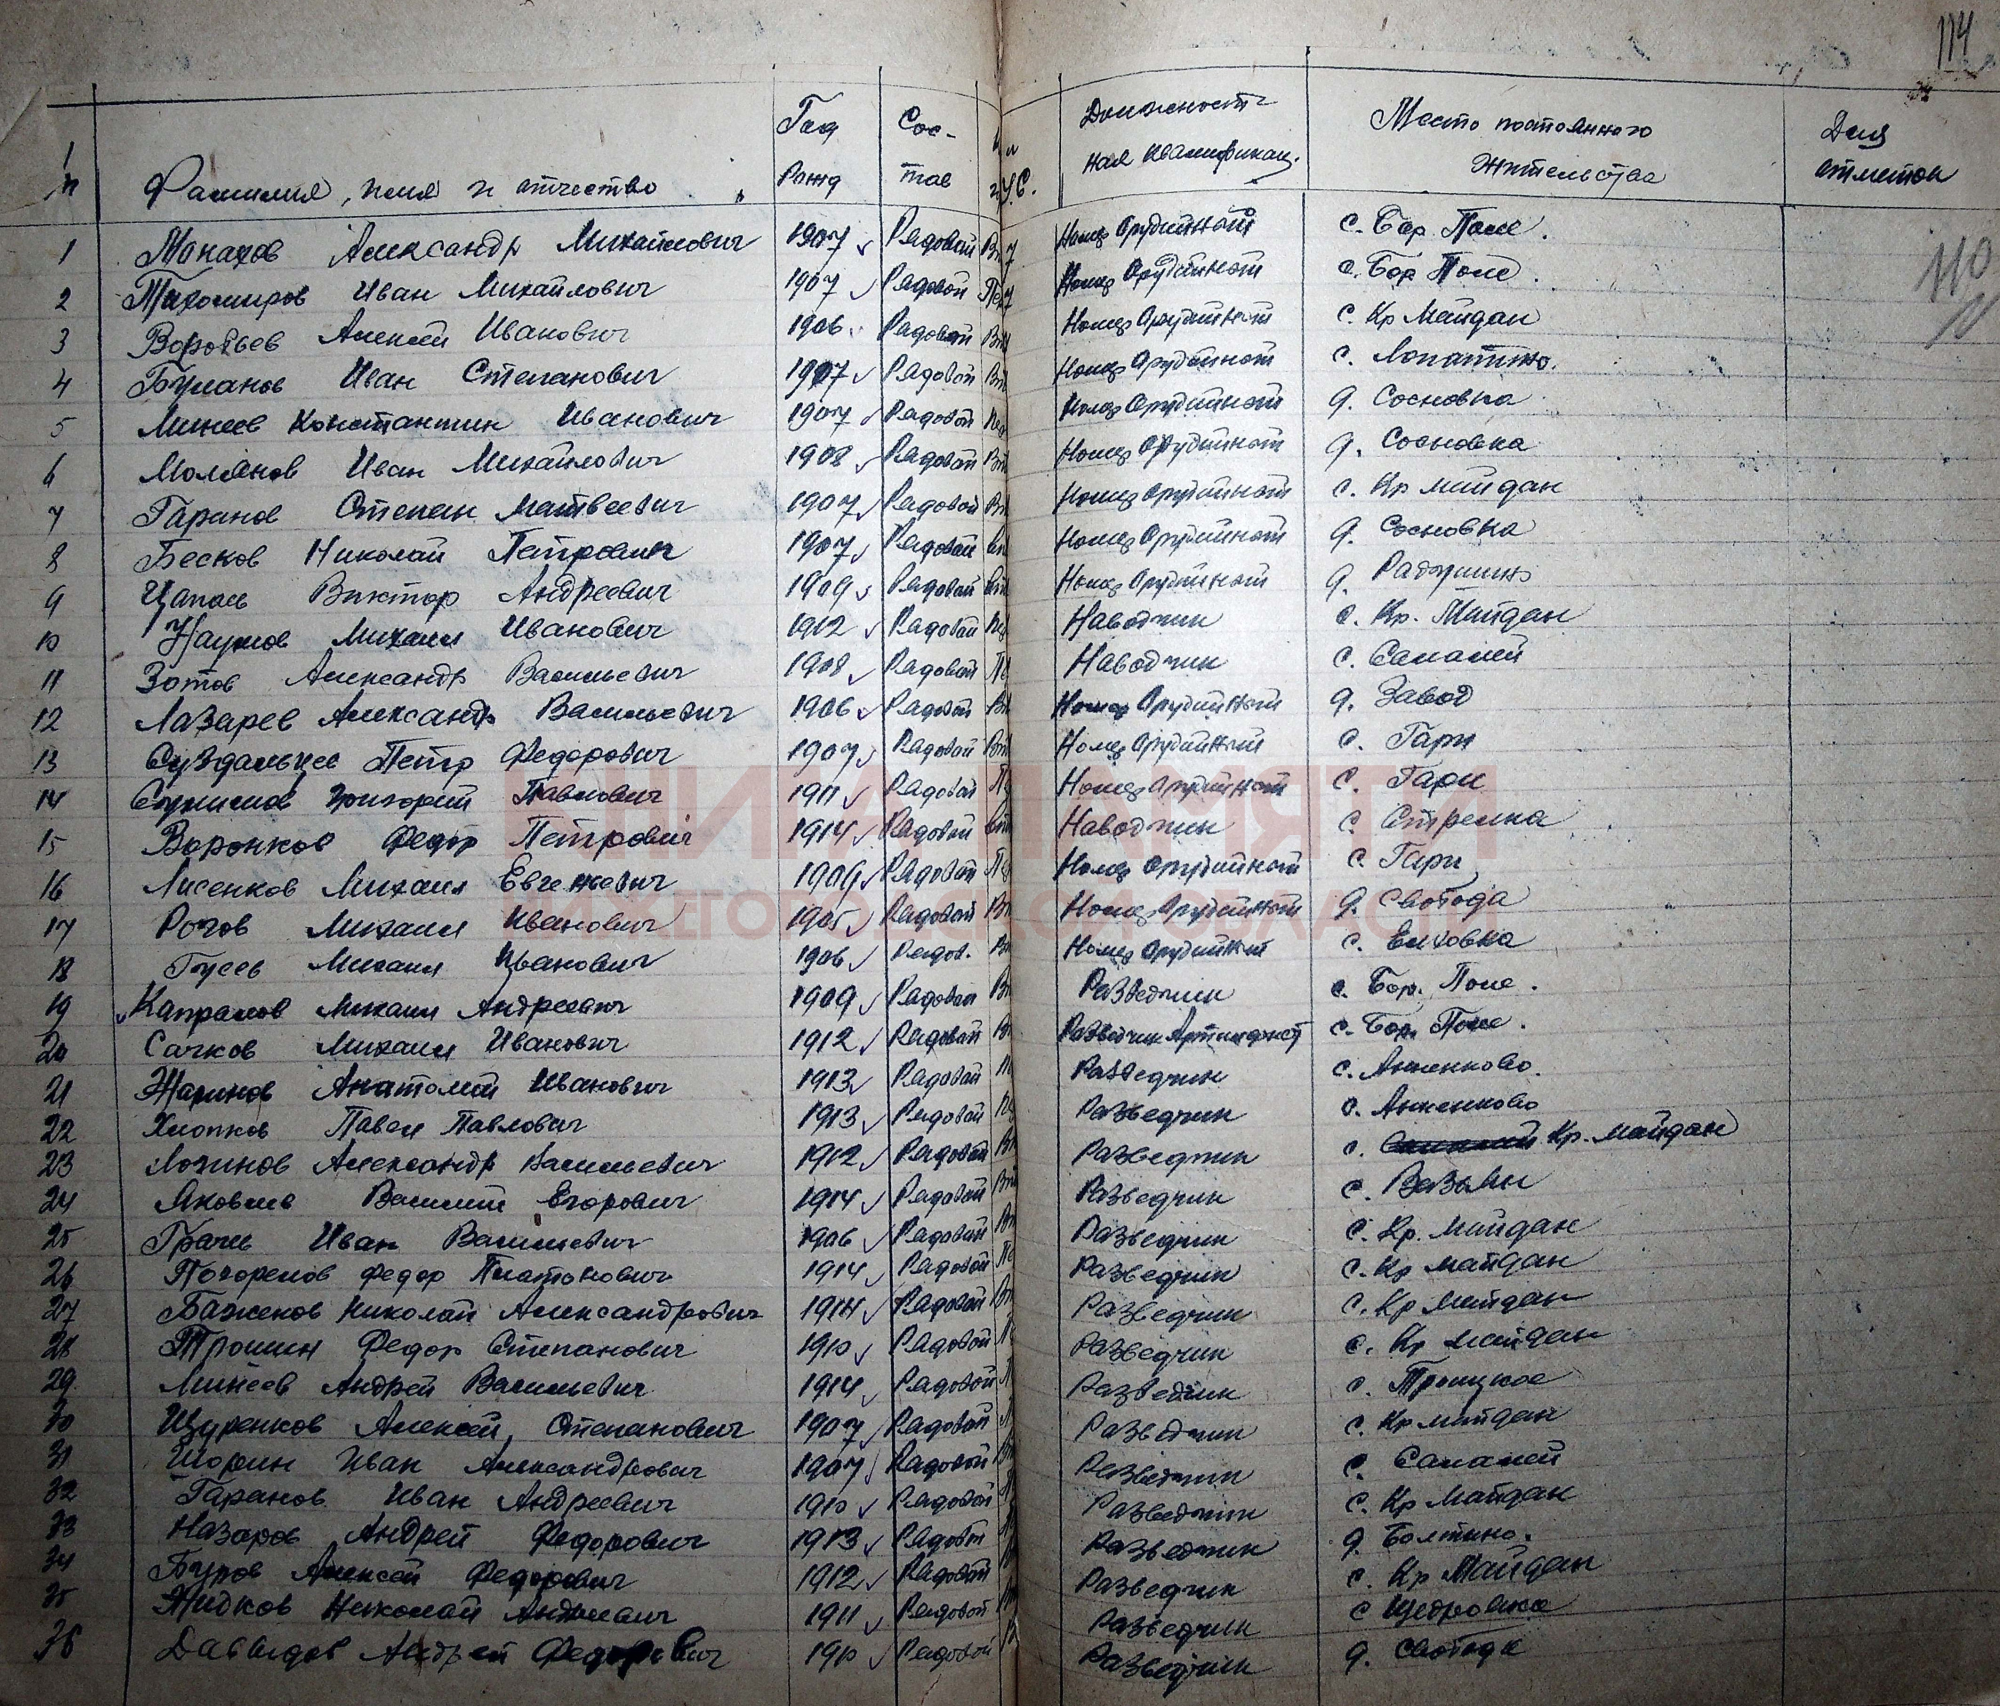 114
Фамилия, имя и отчество Год рожд Состав У.С. Должностная квалификац. Место постоянного жительства Для отметок
110
1 Монахов Александр Михайлович 1907 Рядовой Номер Орудийный с. Бор. Поле.
2 Тихомиров Иван Михайлович 1907 Рядовой Номер Орудийный с. Бор Поле.
3 Воробьев Алексей Иванович 1906 Рядовой Номер Орудийный с. Кр Майдан
4 Буланов Иван Степанович 1907 Рядовой Номер Орудийный с. Лопатино.
5 Минеев Константин Иванович 1907 Рядовой Номер Орудийный д. Сосновка
6 Молянов Иван Михайлович 1908 Рядовой Номер Орудийный д. Сосновка
7 Гаранов Степан Матвеевич 1907 Рядовой Номер Орудийный с. Кр Майдан
8 Бесков Николай Петрович 1907 Рядовой Номер Орудийный д. Сосновка
9 Цапаев Виктор Андреевич 1909 Рядовой Номер Орудийный д.
10 Наумов Михаил Иванович 1912 Рядовой Наводчик с. Кр. Майдан
11 Зотов Александр Васильевич 1908 Рядовой Наводчик с. Саналей
12 Лазарев Александр Васильевич 1906 Рядовой Номер Орудийный д. Завод
13 Суздальцев Петр Федорович 1907 Рядовой Номер Орудийный с. Гари
14 Григорий Павлович 1911 Рядовой Номер Орудийный с. Гари
15 Воронков Федор Петрович 1914 Рядовой Наводчик с. Стрелка
16 Лисенков Михаил Евгеньевич 1909 Рядовой Номер Орудийный с. Гари
17 Рогов Михаил Иванович 1905 Рядовой Номер Орудийный д. Свобода
18 Гусев Михаил Иванович 1906 Рядов. Номер Орудийный с. Елховка
19 Капралов Михаил Андреевич 1909 Рядовой Разведчик с. Бор. Поле.
20 Сачков Михаил Иванович 1912 Рядовой Разведчик Артиллерист с. Бор. Поле.
21 Жаринов Анатолий Иванович 1913 Рядовой Разведчик с. Анненково.
22 Хлопков Павел Павлович 1913 Рядовой Разведчик с. Анненково
23 Логинов Александр Васильевич 1912 Рядовой Разведчик с. Кр. Майдан
24 Яковлев Василий Егорович 1914 Рядовой Разведчик с. Вазьян
25 Грачев Иван Васильевич 1906 Рядовой Разведчик с. Кр. Майдан
26 Погорелов Федор Платонович 1914 Рядовой Разведчик с. Кр Майдан
27 Баженов Николай Александрович 1914 Рядовой Разведчик с. Кр Майдан
28 Трошин Федор Степанович 1910 Рядовой Разведчик с. Кр Майдан
29 Минеев Андрей Васильевич 1914 Рядовой Разведчик с. Троицкое
30 Щуренков Алексей Степанович 1907 Рядовой Разведчик с. Кр Майдан
31 Шорин Иван Александрович 1907 Рядовой Разведчик с. Саналей
32 Гаранов Иван Андреевич 1910 Рядовой Разведчик с. Кр Майдан
33 Назаров Андрей Федорович 1913 Рядовой Разведчик д. Болтино.
34 Буров Алексей Федорович 1912 Рядовой Разведчик с. Кр Майдан
35 Жидков Николай Андреевич 1911 Рядовой Разведчик с Щедровка
36 Давыдов Андрей Федорович 1910 Рядовой Разведчик д. Свобода
КНИГА ПАМЯТИ
НИЖЕГОРОДСКОЙ ОБЛАСТИ